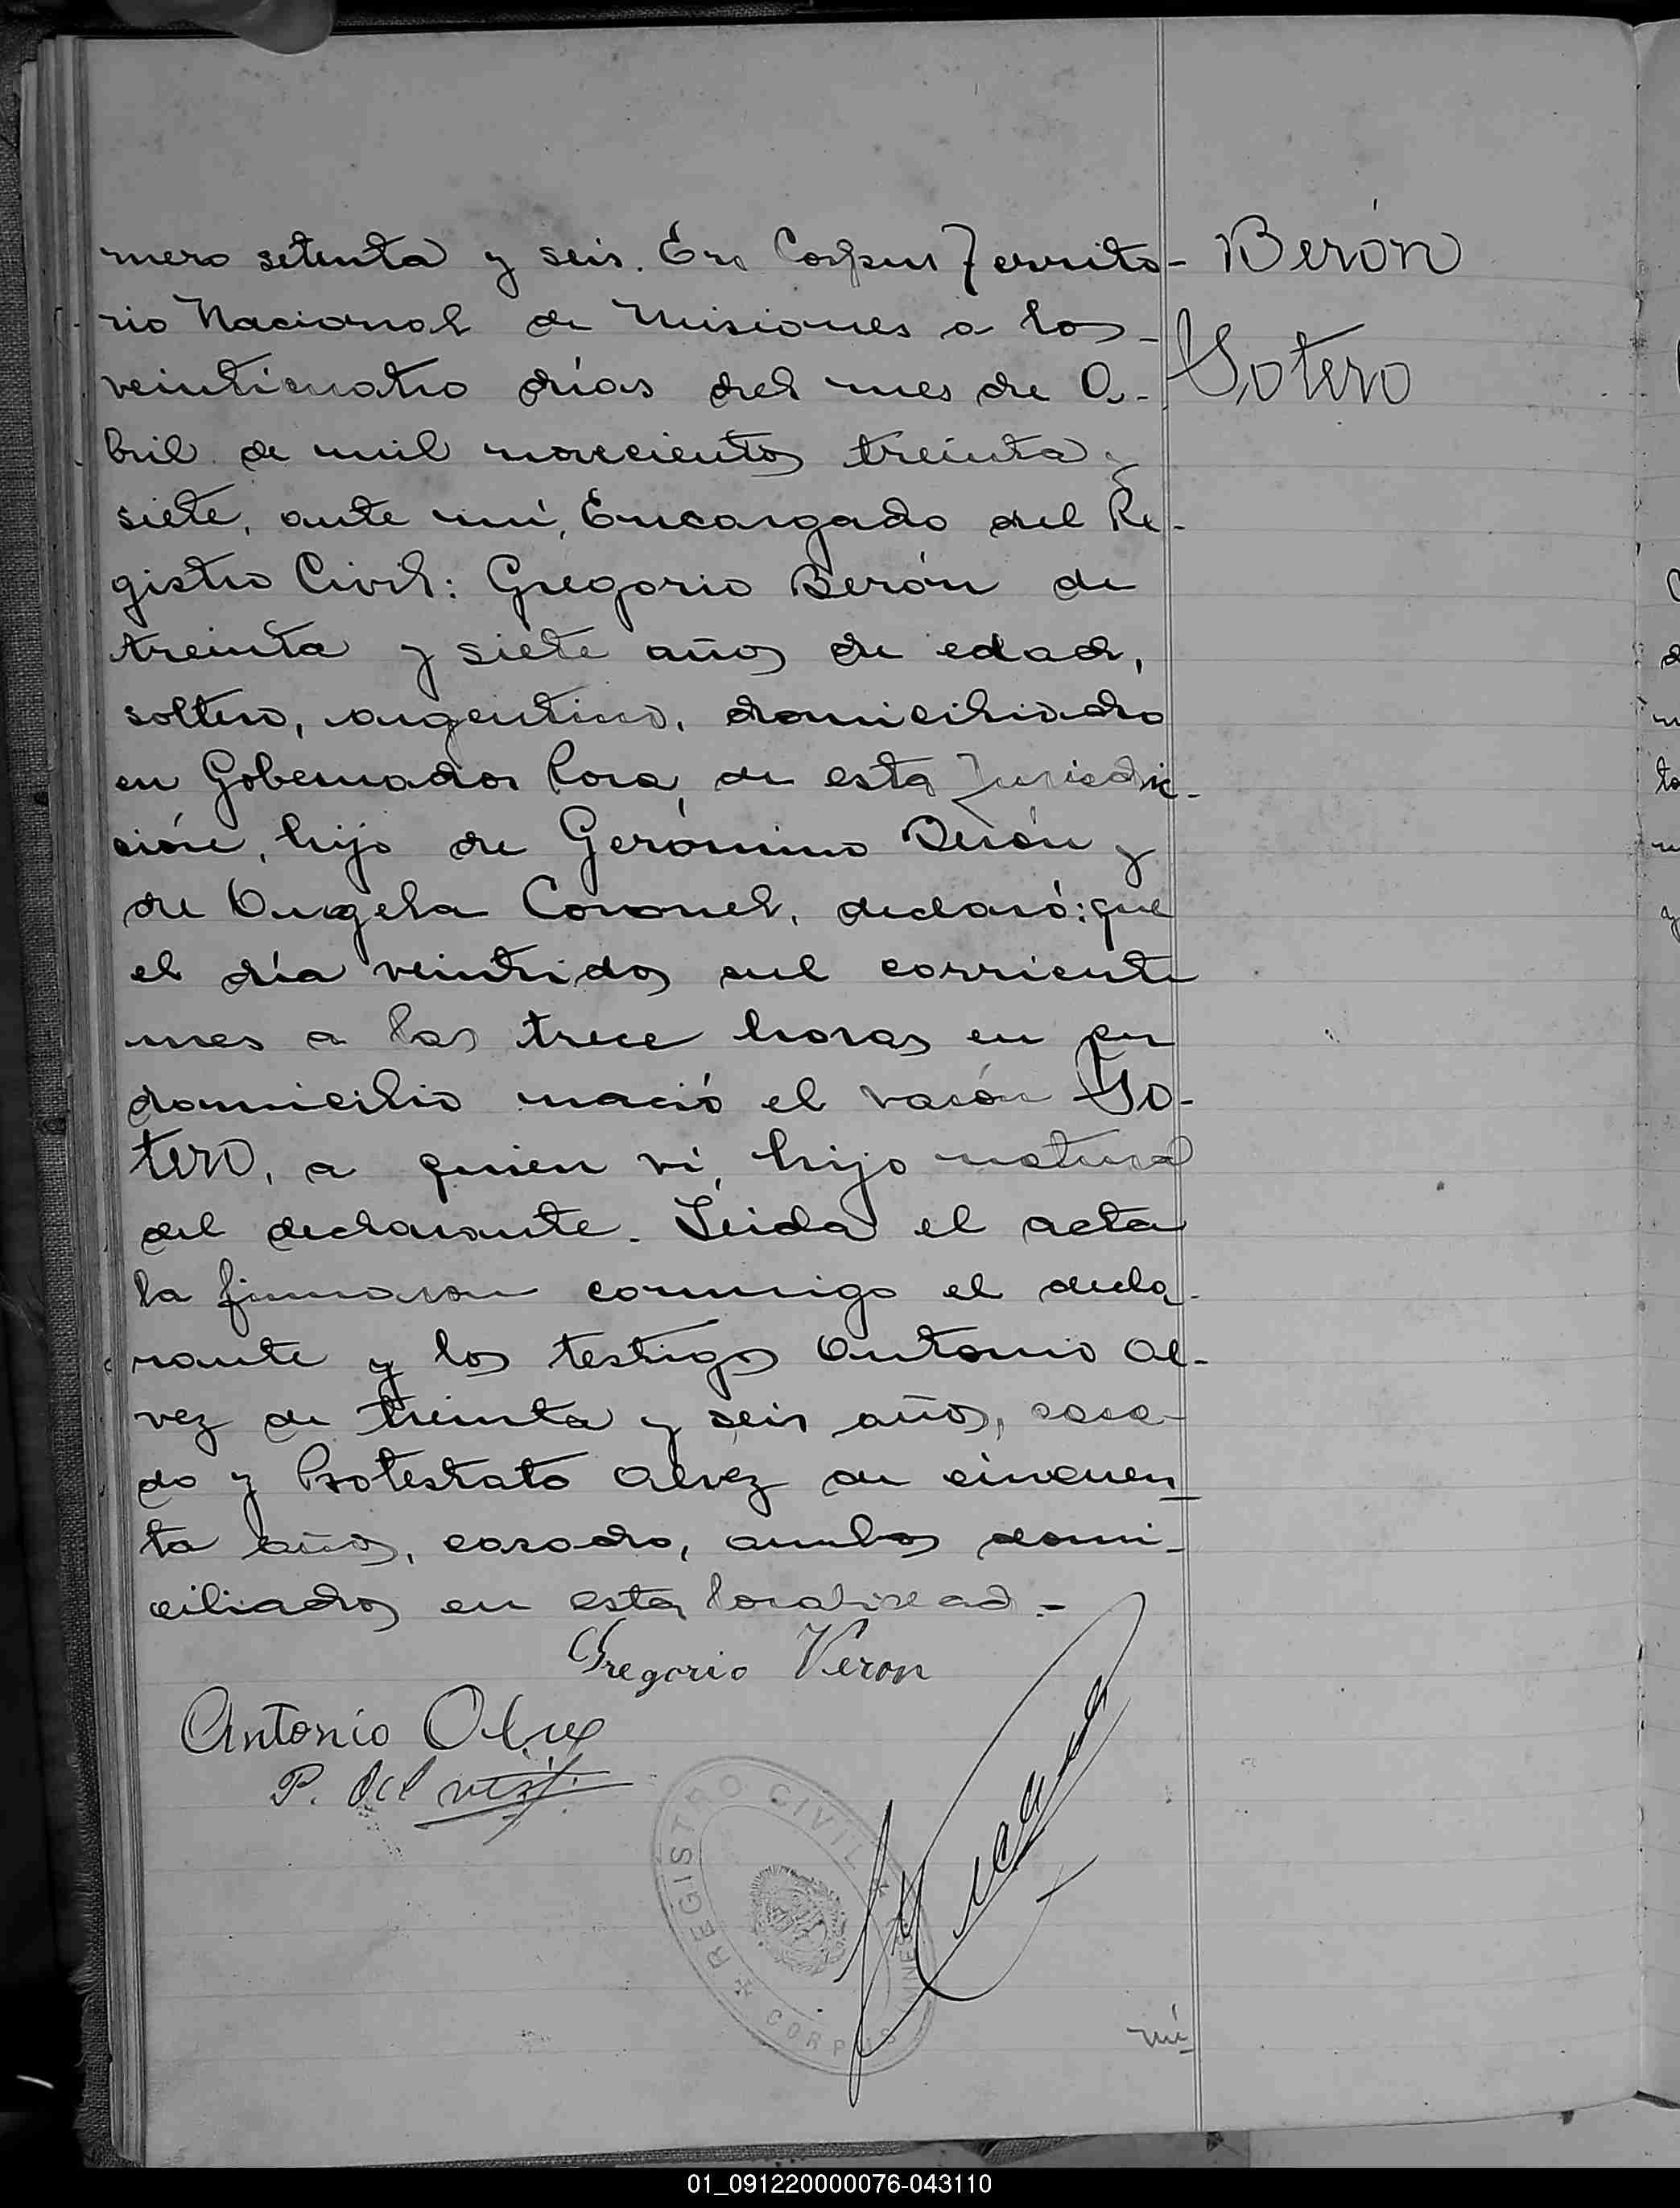 mero setenta y seis. En Corpus Territo-
Berón
rio Nacional de Misiones a los
Sotero
veinticuatro días del mes de A-
bril de mil novecientos treinta y
siete, ante mí, Encargado del Re-
gistro Civil: Gregorio Berón de
treinta y siete años de edad,
soltero, argentino, domiciliado
en Gobernador Roca, de esta Jurisdic-
ción, hijo de Gerónimo Berón y
de Angela Coronel, declaró: que
el día veintidos del corriente
mes a las trece horas en su
domicilio nació el varón So-
tero, a quien ví, hijo natural
del declarante. Leida el acta
la firmaron conmigo el decla-
rante y los testigos Antonio Al-
vez de treinta y seis años, casa-
do y Protestato Alvez de cincuen
ta años, casado, ambos domi-
ciliados en esta localidad.-
Gregorio Veron
Antonio
P. del
REGISTRO CIVIL
CORPUS
01_091220000076-043110